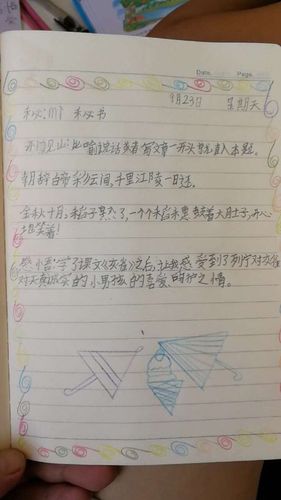 Date. Page.
9月23日 星期天
秘:mì 秘书
开门见山:比喻说话或者写文章一开头就直入本题。
朝辞白帝彩云间,千里江陵一日还。
金秋十月,稻子熟了,一个个稻穗鼓着大肚子,开心
地笑着!
感悟:学了课文《灰雀》之后,让我感受到了列宁对灰雀
对天真诚实的小男孩的喜爱、呵护之情。